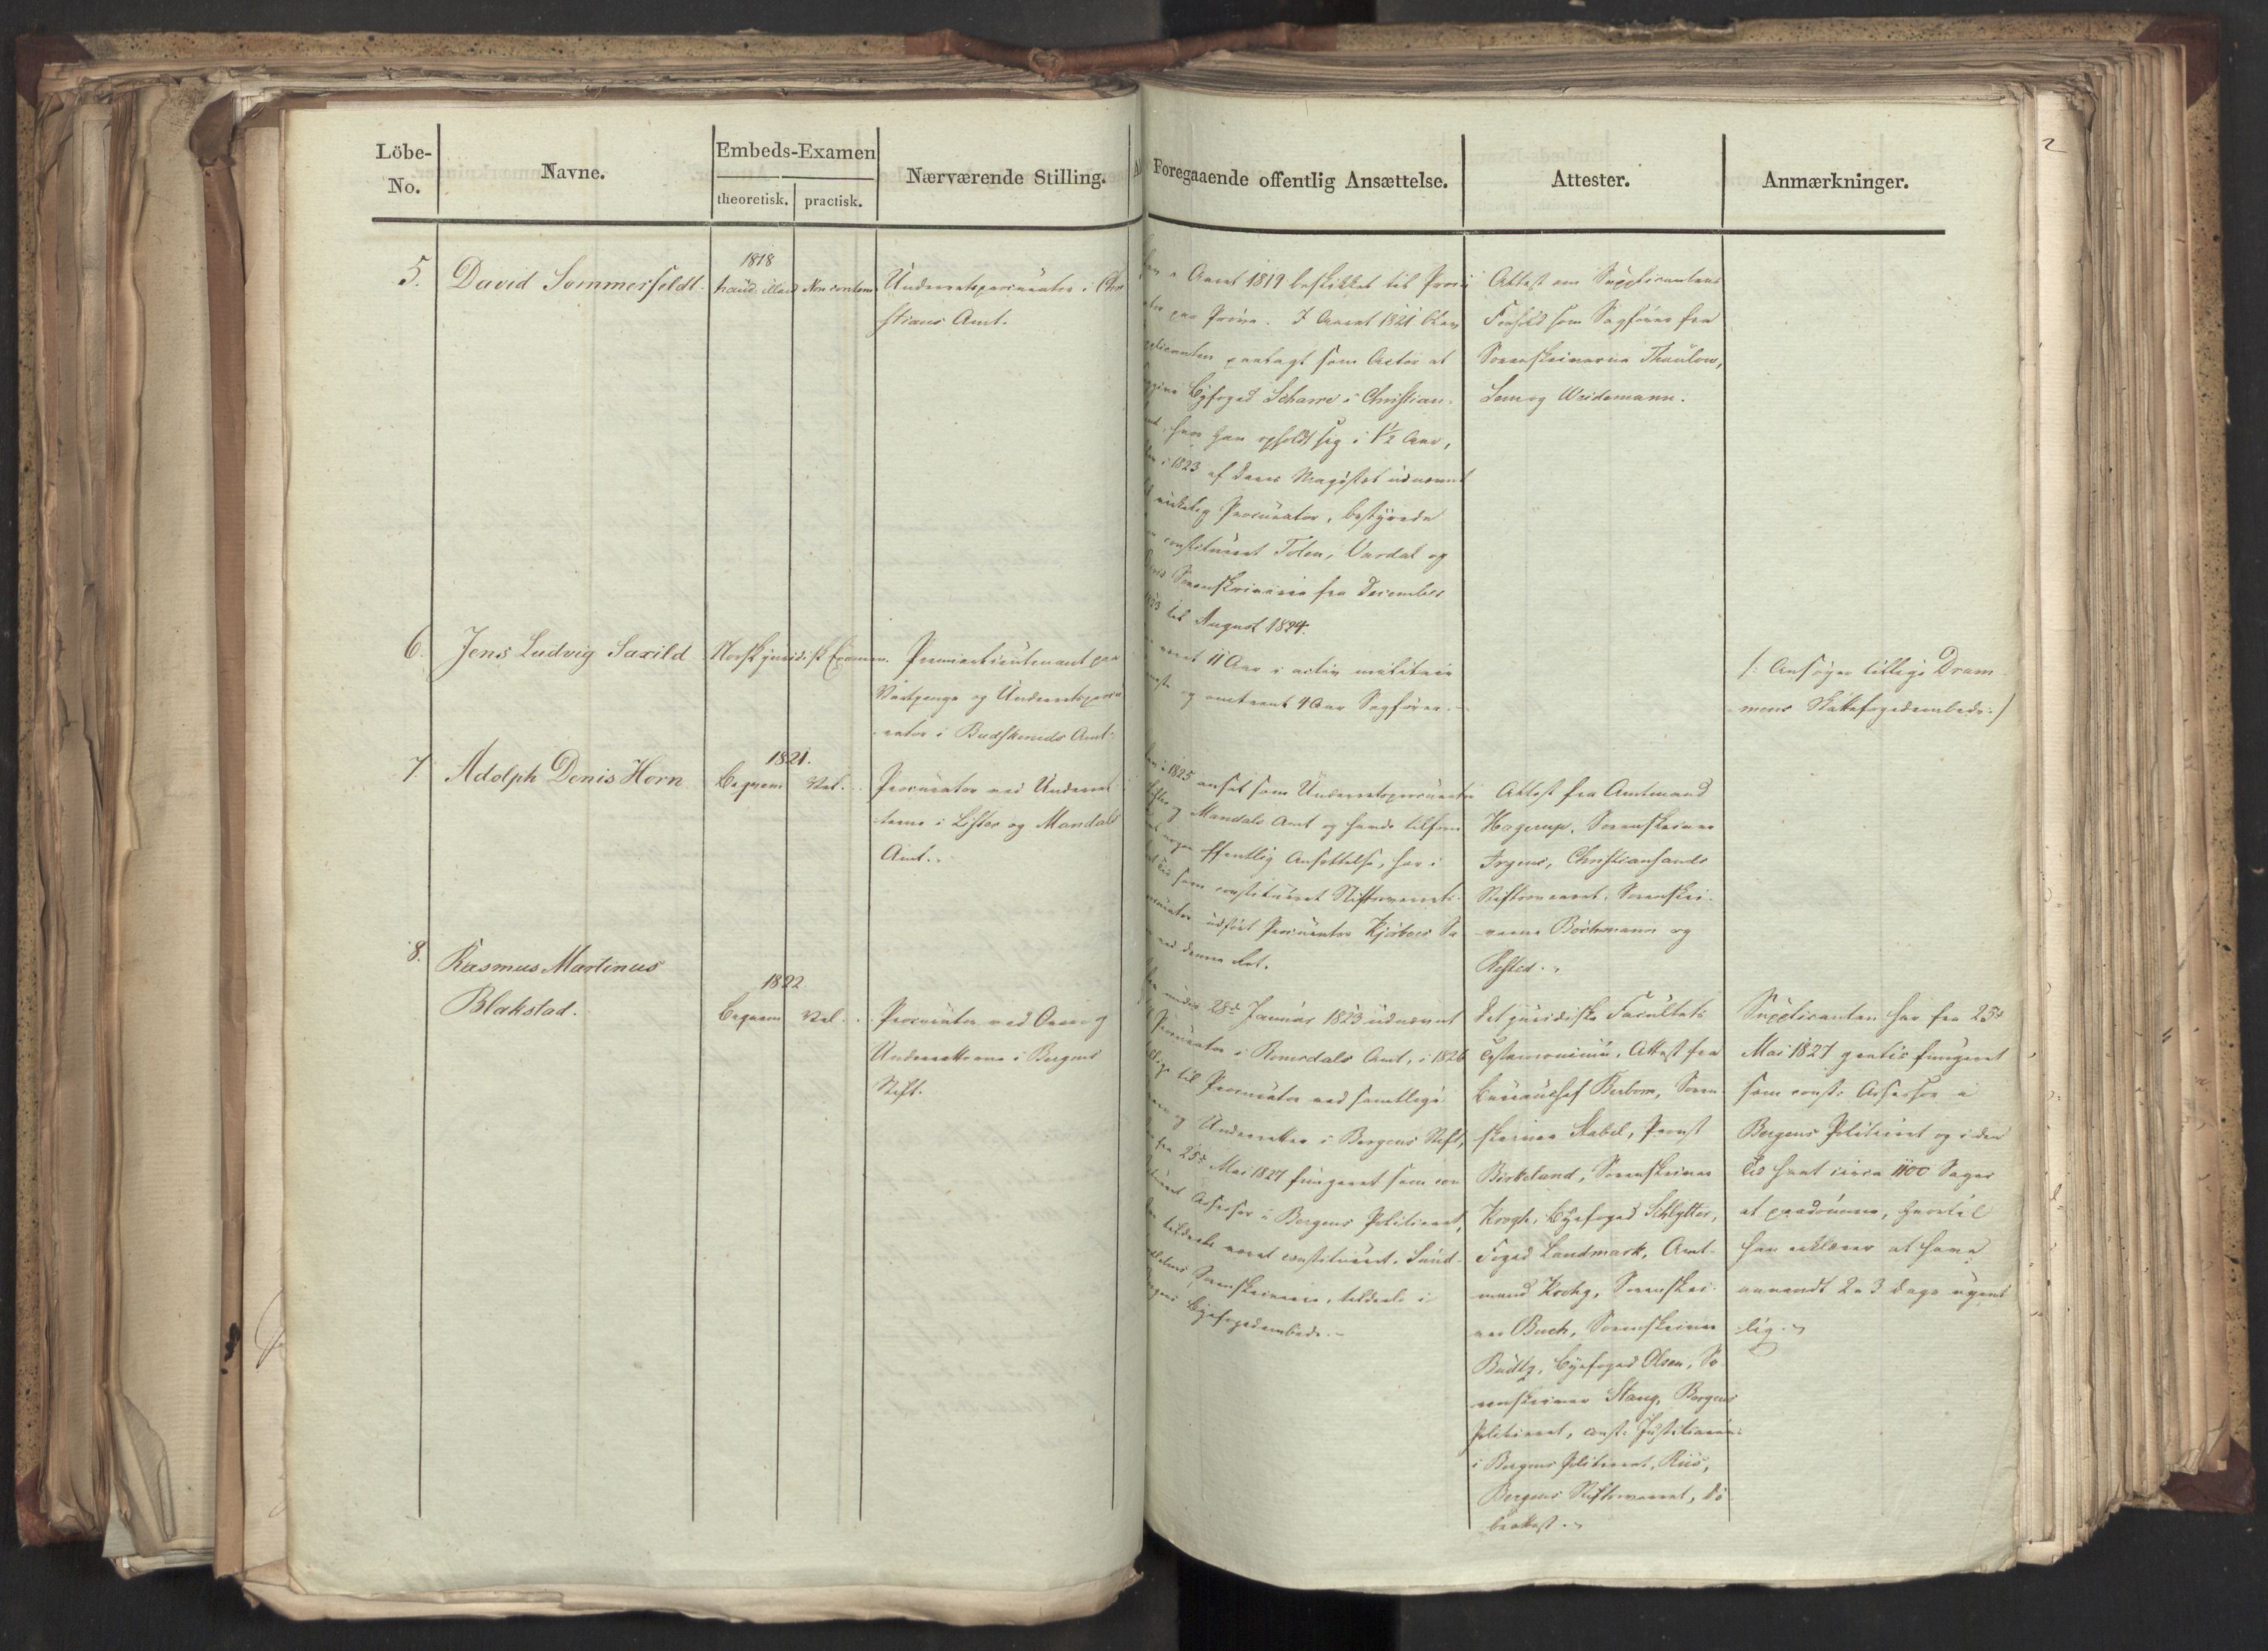 Löbe-
No.
Navne.
Embeds-Examen
theoretisk.
practisk.
Nærværende Stilling.
Foregaaende offentlig Ansættelse.
Attester.
Anmærkninger.
2
5.
David Sommerfeldt.
1818
haud illaud
Non contem.
Underretsprocurator i Chri
stians Amt.
i Aaret 1819 beskikket til Procu
paa Prøve. I Aaret 1821 blev
antaget som Actor
Byfoged Scharre i Christian-
, hvor han opholdt sig i 1½ Aar,
i 1823 af Deres Majestæt udnævnt
virkelig Procurator, bestyrede
constitueret Toten, Vardal og
Sorenskriverie fra December
til August 1824.
Attest om Supplicantens
Forhold som Sagfører fra
Sorenskriverne Thaulow,
Lem og Weidemann.
6.
Jens Ludvig Saxild
Norsk juridisk Examen.
Premierlieutenant paa
Vartpenge og Underretsprocu
rator i Budskeruds Amt.
været 11 Aar i activ militair
og omtrent 4 Aar Sagfører.-
/: Ansøger tillige Dram-
mens :/
7
Adolph Denis Horn
1821.
Beqvem
Vel.
Procurator ved Underret
terne i Lister og Mandals
Amt.
i 1825 ansat som Underretsprocurator
og Mandals Amt og havde tilforn
nogen offentlig Ansættelse, har i
som constitueret Stiftsoverrets-
procurator udført Procurator Kjørboes Sa
ved denne Ret.
Attest fra Amtmand
Hagerup, Sorenskriver
Irgens, Christiansands
Stiftsoverret, Sorenskri-
verne Bochmann og
8.
Rasmus Martinus
Blakstad.
1822
Beqvem
Vel.
Procurator ved Over og
Underretterne i Bergens
Stift.
under 28de Januar 1823 udnævnt
Procurator i Romsdals Amt, i 1826
til Procurator ved samtlige
og Underretter i Bergens Stift,
fra 25de Mai 1827 fungeret som con
stitueret Assessor i Bergens Politieret,
tildeels været constitueret. Sund-
Sorenskriverie, tildeels i
Byefogedembede.-
Det juridiske Facultets
Testimonium, Attest fra
Bureauchef Berbom, Soren-
skriver Stabel, Provst
Birkeland, Sorenskriver
Krogh, Byefoged Schlytter,
Foged Landmark, Amt-
mand Krohg, Sorenskri-
ver Buch, Sorenskriver
Budtz, Byefoged Olsen, So-
renskriver Stang, Bergens
Politieret, const: Justitiarius
i Bergens Politieret, Riis,
Bergens Stiftsoverret, Dø-
beattest.
Supplicanten har fra 25de
Mai 1827 gratis fungeret
som const: Assessor i
Bergens Politieret og i den
Tid havt circa 1100 Sager
at paadømme, hvortil
han erklærer at have
anvendt 2 a 3 Dage ugent
lig.